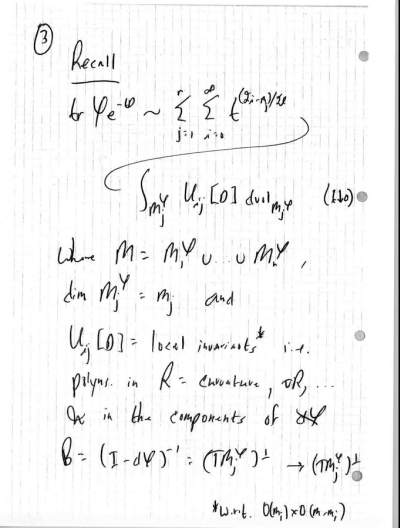 ③
Recall
tr φe^{-tD} ~ Σ_{j=1}^{r} Σ_{i=0}^{∞} t^{(2i-m_j)/2ℓ}
∫_{M_j^φ} U_{ij}[D] dvol_{M_j^φ}
where M = M_1^φ ∪ ... ∪ M_r^φ ,
dim M_j^φ = m_j and
U_{ij}[D] = local invariants* i.e.
polyns. in R = curvature, ∇R, ...
in the components of
B = (I - dφ)^{-1} : (TM_j^φ)^⊥ → (TM_j^φ)^⊥
*w.r.t. O(m_j) × O(m-m_j)